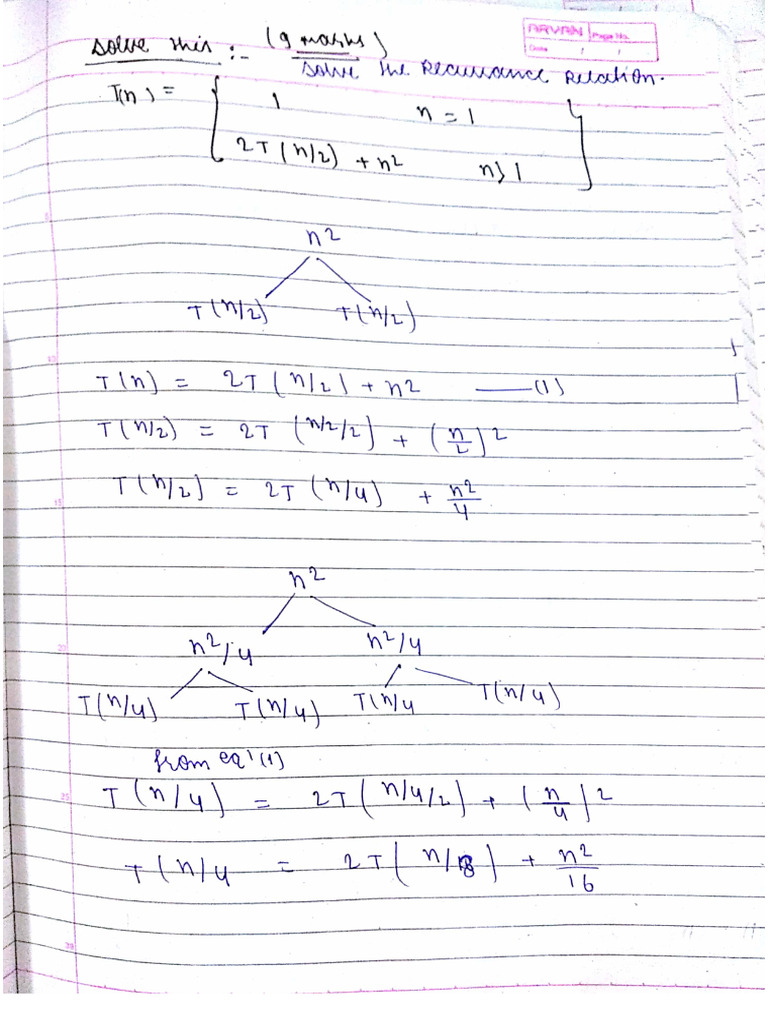 ARVAN Page No.
Date / /
Solve this :- (9 marks)
Solve the Recurrance Relation.
T(n) = { 1 n = 1
2T (n/2) + n2 n > 1 }
5
n2
T(n/2) T(n/2)
10
T(n) = 2T (n/2) + n2 ——(1)
T(n/2) = 2T (n/2/2) + (n/2)2
T(n/2) = 2T (n/4) + n2/4
15
n2
n2/4 n2/4
20
T(n/4) T(n/4) T(n/4 T(n/4)
from eq'(1)
T (n/4) = 2T (n/4/2) + (n/4)2
25
T(n/4 = 2T( n/8) + n2/16
30